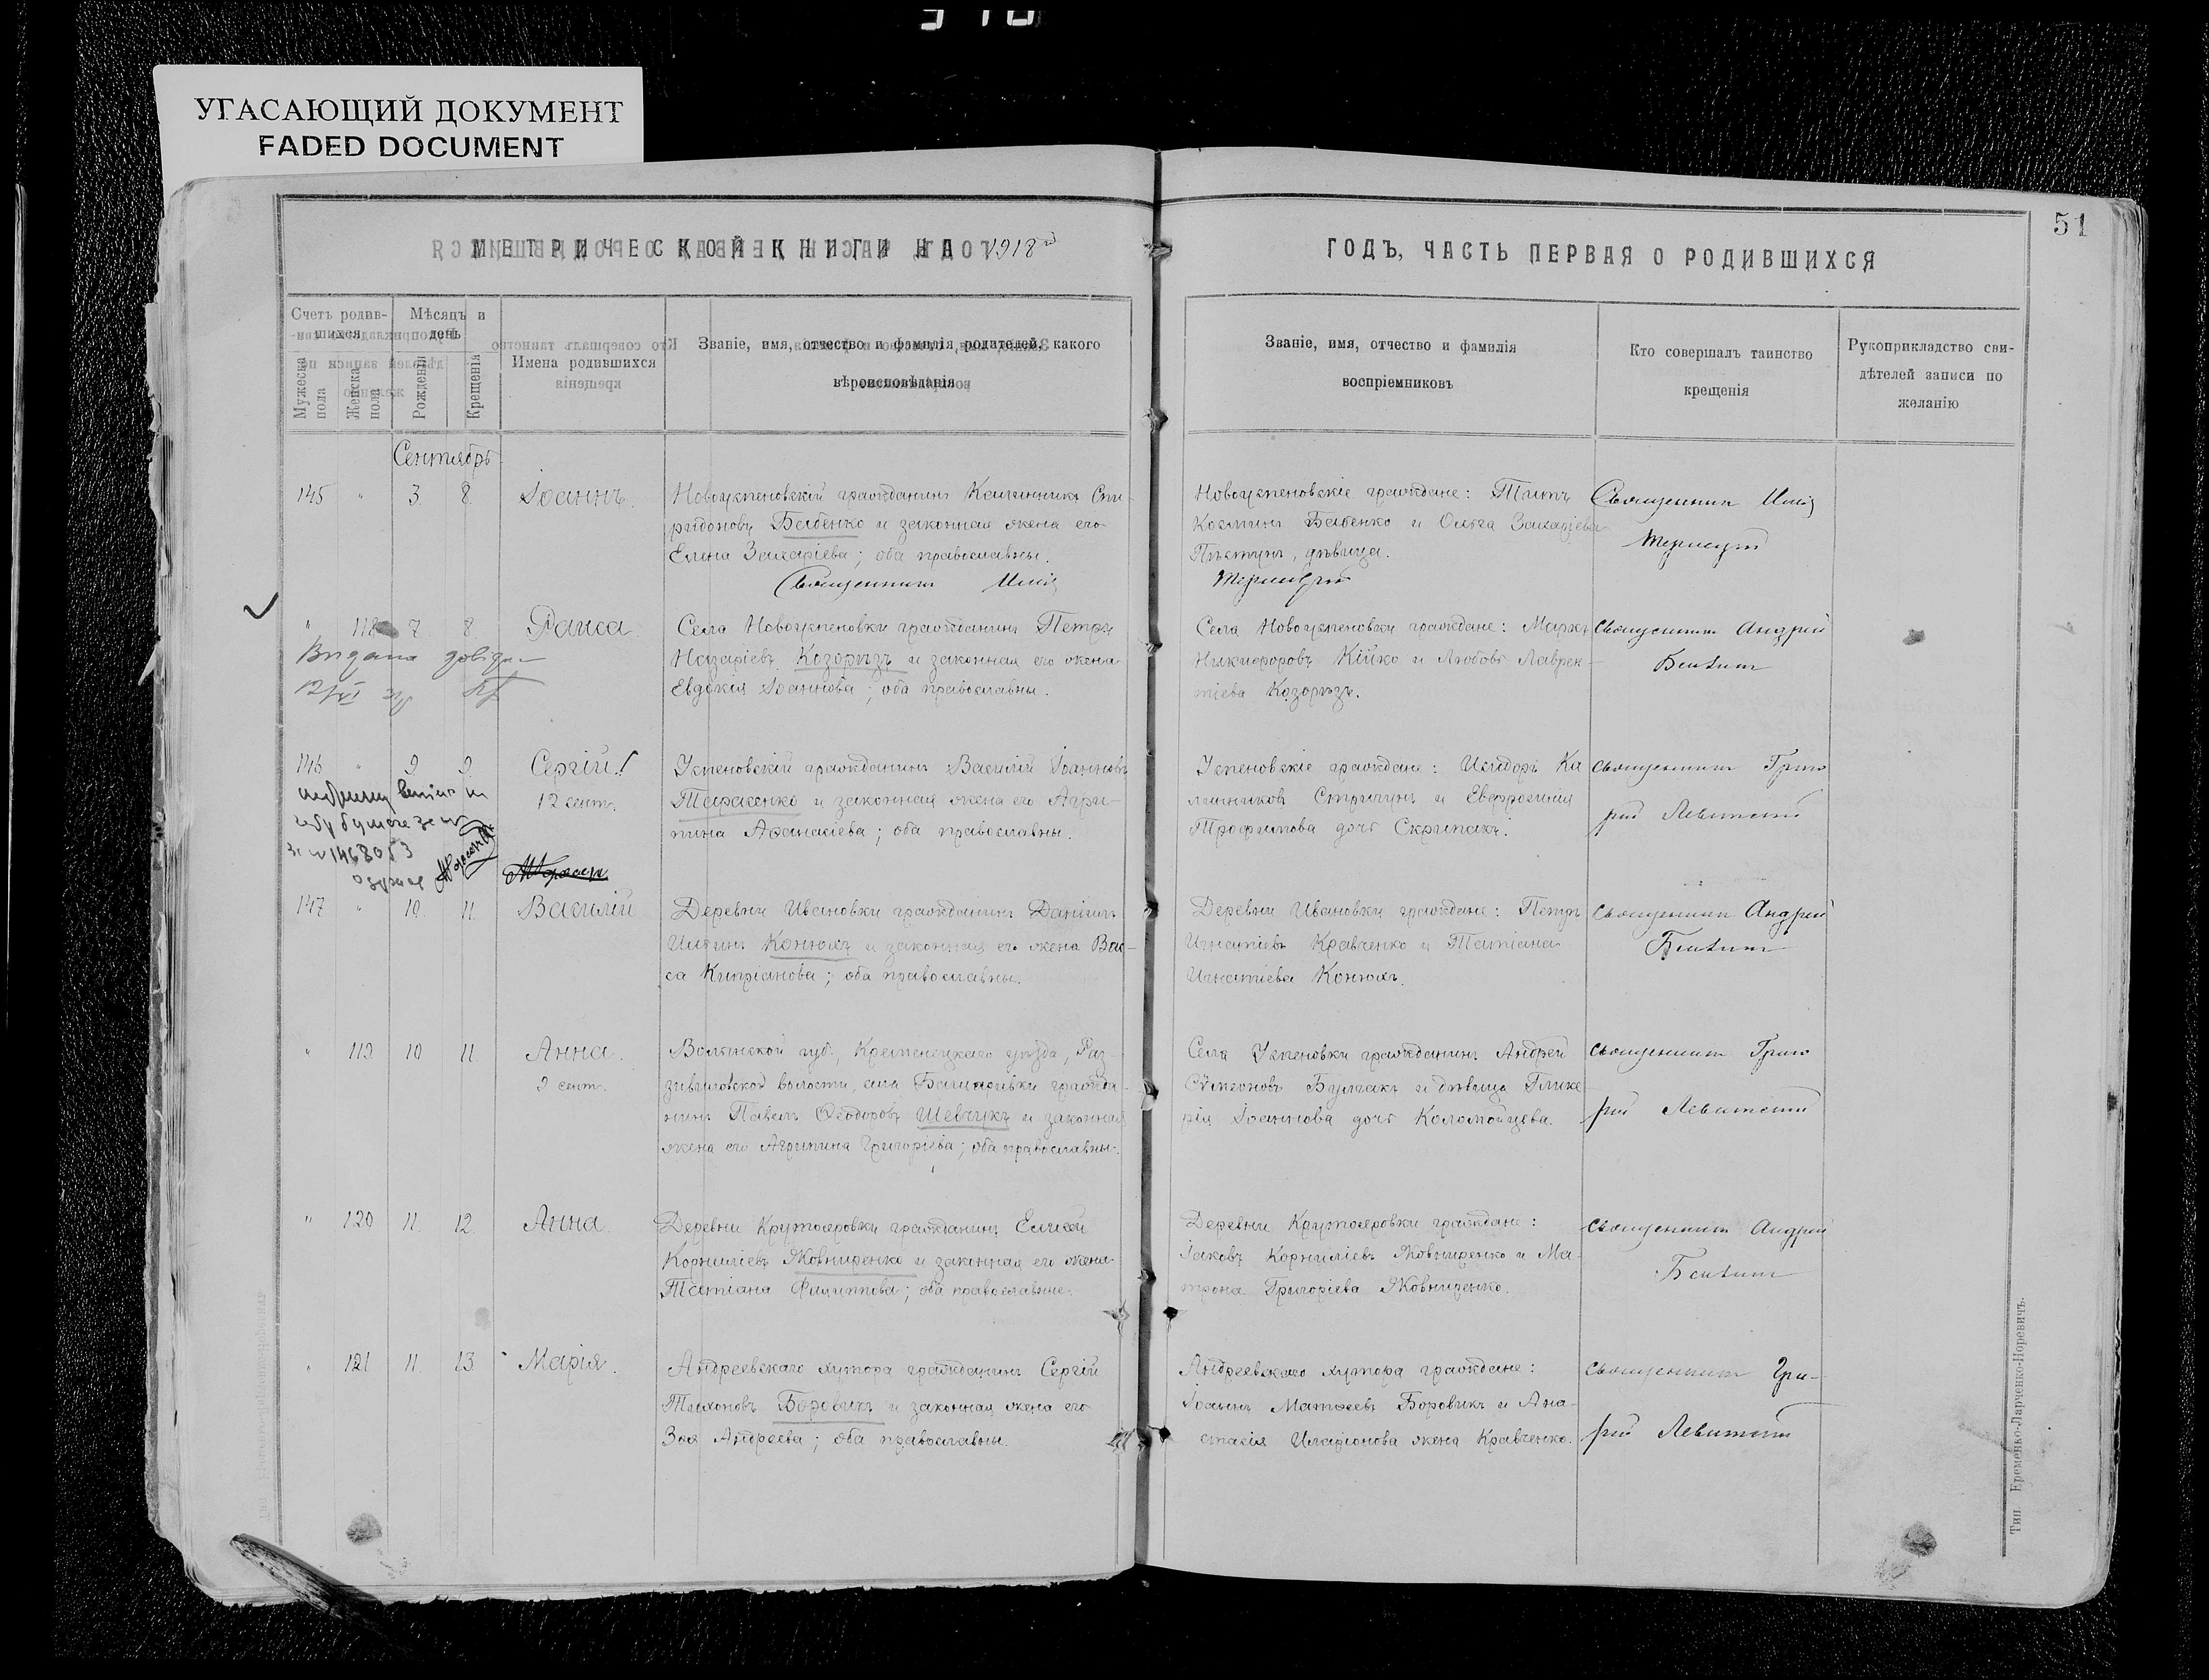 УГАСАЮЩИЙ ДОКУМЕНТ
FADED DOCUMENT
51
МЕТРИЧЕСКОЙ КНИГИ НА 1918й
ГОДЪ, ЧАСТЬ ПЕРВАЯ О РОДИВШИХСЯ
Счетъ родив-
шихся
Мѣсяцъ и
день
Мужеска пола
Женска пола
Рожденія
Крещенія
Имена родившихся
Званіе, имя, отчество и фамилія родителей, какого
вѣроисповѣданія
Званіе, имя, отчество и фамилія
воспріемниковъ
Кто совершалъ таинство
крещенія
Рукоприкладство сви-
дѣтелей записи по
желанію
Сентябрь
145 " 3. 8. Іоаннъ.
Новоуспеновскій гражданинъ Калинникъ Спи-
ридоновъ Бабенко и законная жена его
Елена Захаріева; оба православны.
Священникъ
Новоуспеновскіе граждане: Титъ
Козминъ Бабенко и Ольга Захаріева
дѣвица.
Священникъ
" 118 7. 8. Раиса
Села Новоуспеновки гражданинъ Петръ
Назаріевъ Козорѣзъ и законная его жена
Евдокія Іоаннова; оба православны.
Села Новоуспеновки граждане: Маркъ
Никифоровъ Кійко и Любовь Лаврен-
тіева Козорѣзъ.
Священникъ Андрей
146 " 9 9. Сергій.
12 сент.
Успеновскій гражданинъ Василій Іоанновъ
Тарасенко и законная жена его Агри-
пина Афанасіева; оба православны.
Успеновскіе граждане: Исидоръ Ка
линниковъ Стригунъ и Евфросинія
Трофимова дочь Скрипакъ.
Священникъ Григо
рій Левитскій
147 " 10. 11. Василій
Деревни Ивановки гражданинъ Даніилъ
Илiинъ Конюхъ и законная его жена Вас-
са Кипріанова; оба православны.
Деревни Ивановки граждане: Петръ
Игнатіевъ Кравченко и Татіана
Игнатіева Конюхъ.
Священникъ Андрей
" 119 10 11. Анна.
9 сент.
Волынской губ., Кременецкаго уѣзда,
волости, села гражда-
нинъ Павелъ Ѳеодоровъ Шевчукъ и законная
жена его Агрипина Григоріева; оба православны.
Села Успеновки гражданинъ Андрей
Сѵмеоновъ Булгакъ и дѣвица Глике
рія Іоаннова дочь Коломойцева.
Священникъ Григо
рій Левитскій
" 120 11. 12 Анна
Деревни Крутояровки гражданинъ Елисей
Корниліевъ Жовниренко и законная его жена
Татіана Филиппова; оба православные.
Деревни Крутояровки граждане:
Іаковъ Корниліевъ Жовниренко и Ма-
трона Григоріева Жовниренко.
Священникъ Андрей
" 121 11. 13 Марія.
Андреевскаго хутора гражданинъ Сергій
Тихоновъ Боровикъ и законная жена его
Зоя Андреева; оба православны.
Андреевскаго хутора граждане:
Іоаннъ Матѳеевъ Боровикъ и Ана-
стасія Иларіонова жена Кравченко.
Священникъ Гри-
рій Левитскій
Тип. Еременко-Ларченко-Норевичъ.